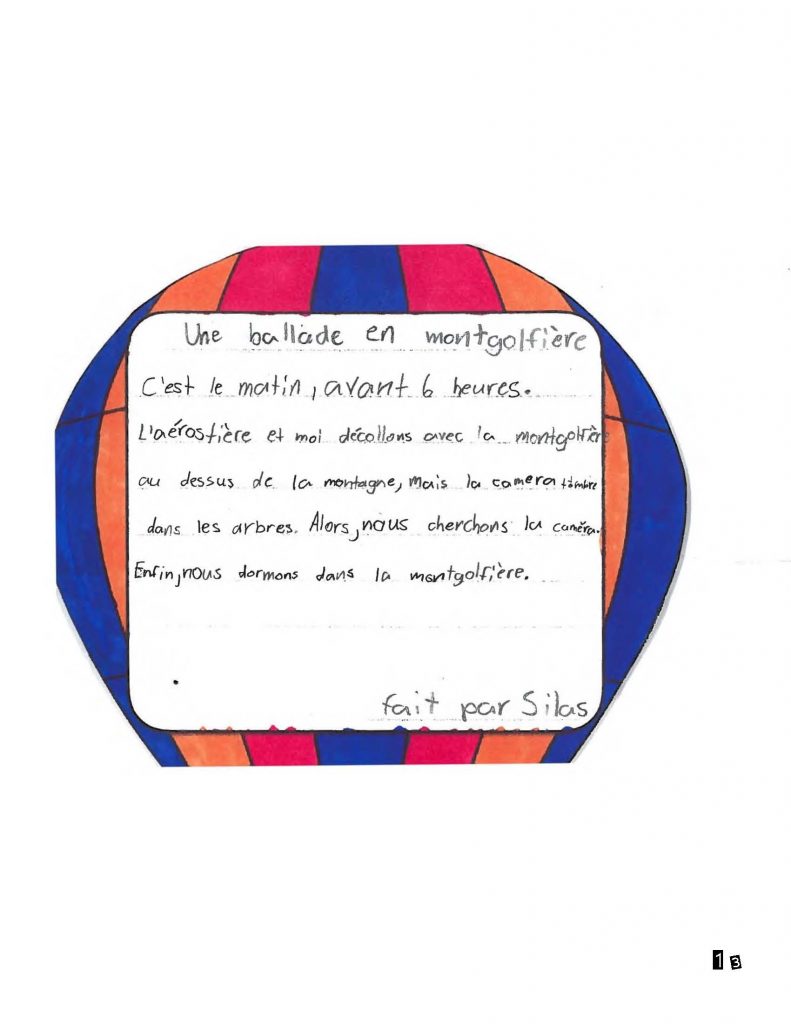 Une ballade en montgolfière
C'est le matin, avant 6 heures.
L'aérostière et moi décollons avec la montgolfière
au dessus de la montagne, mais la camera tombre
dans les arbres. Alors, nous cherchons la caméra.
Enfin, nous dormons dans la montgolfière.
fait par Silas
13